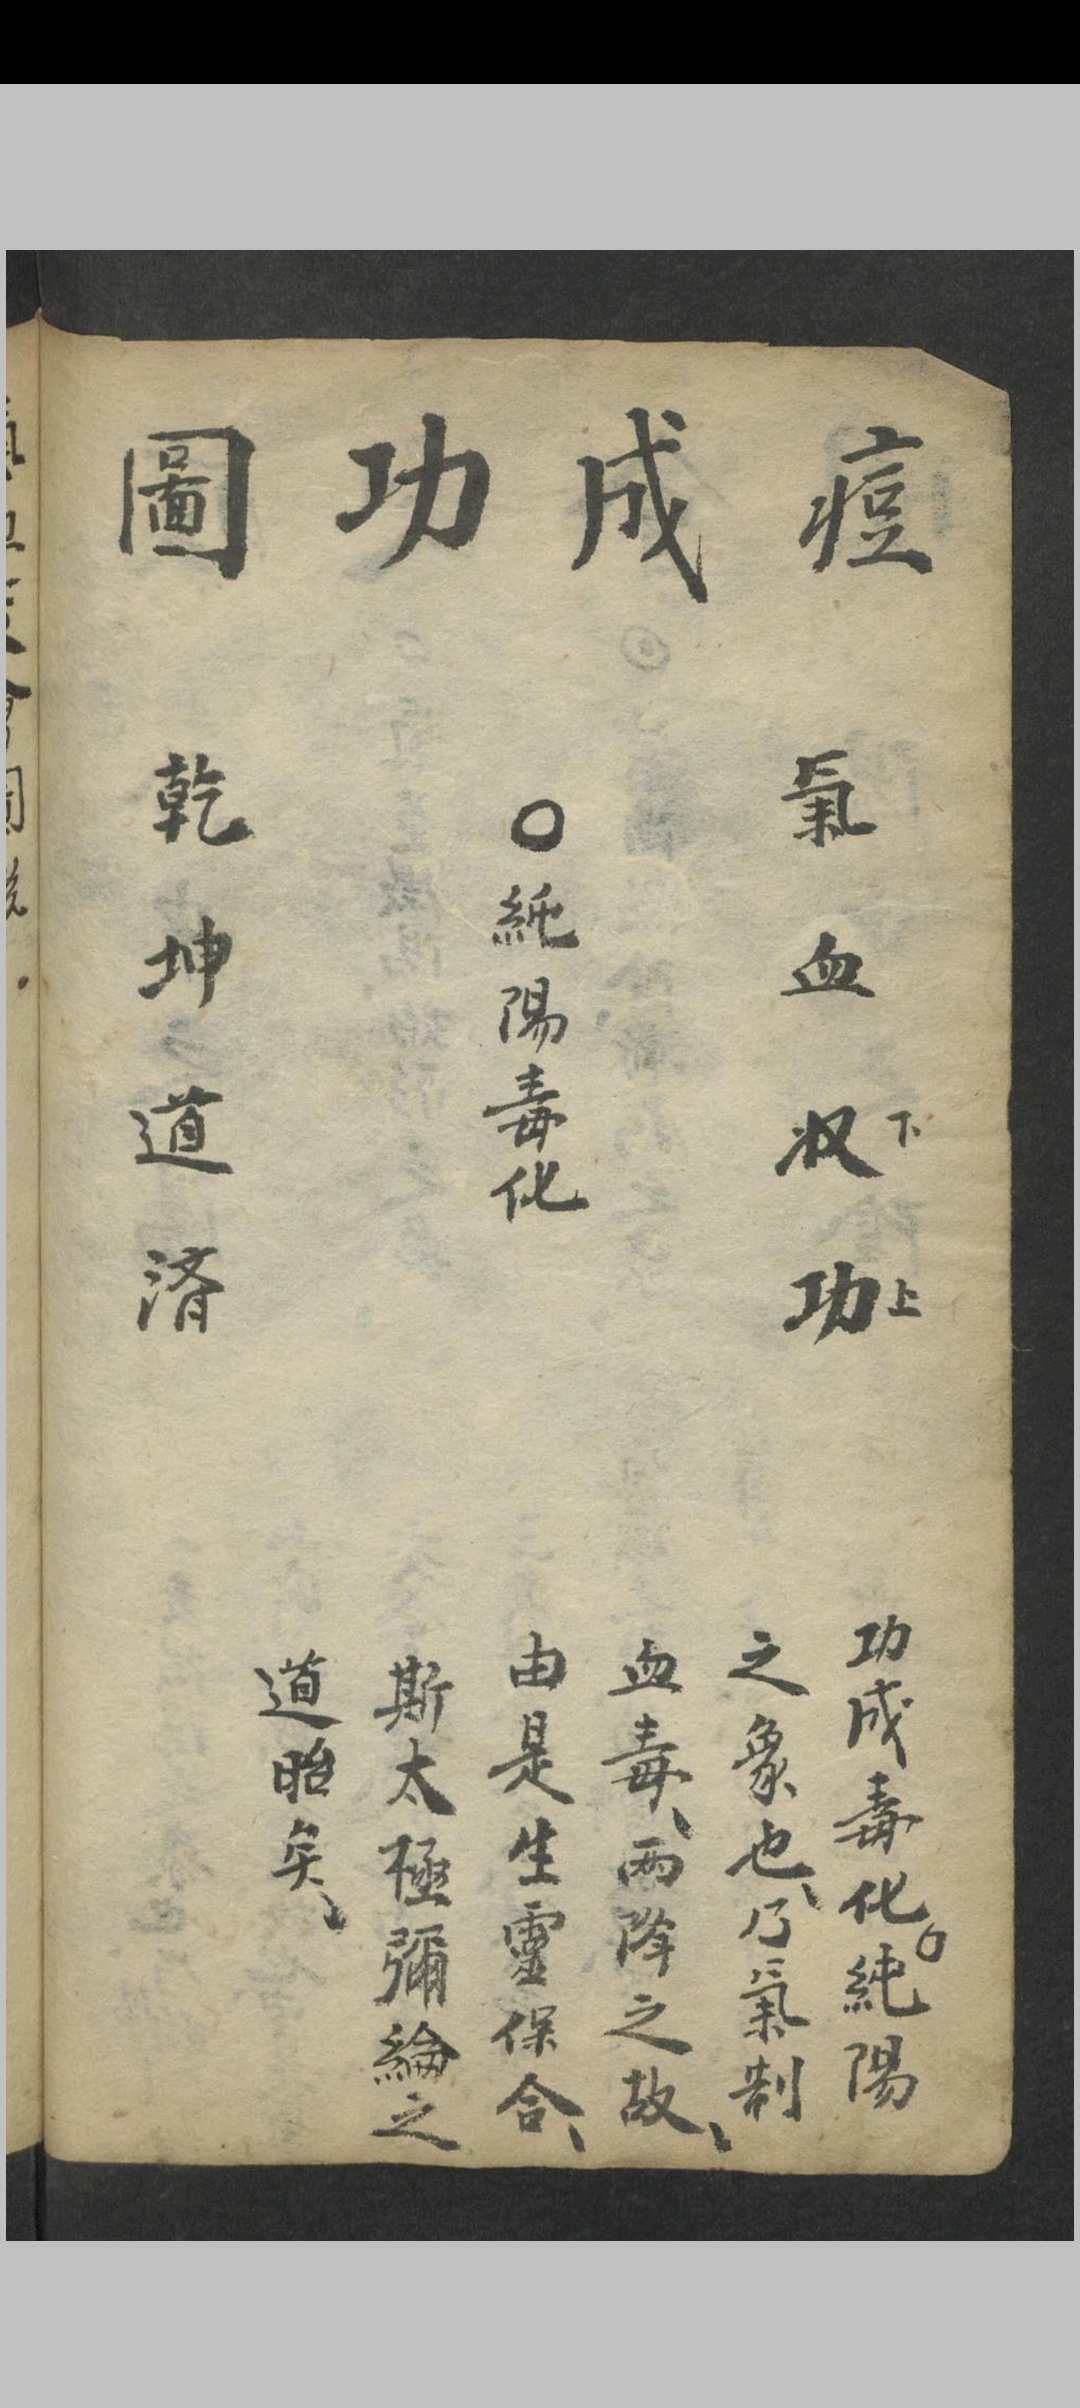 痘成功圖
氣血収功
下
上
○純陽毒化
乾坤道済
功成毒化○純陽
之象也、乃氣制
血毒、両降之故、
由是生靈保合、
斯太極彌綸之
道昭矣、